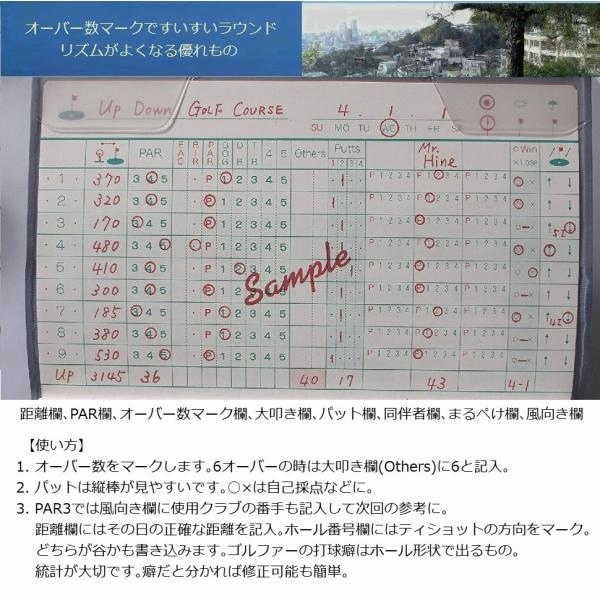 オーバー数マークですいすいラウンド
リズムがよくなる優れもの
Up Down GOLF COURSE 4. 1. 1
SU MO TU WE TH FR SA
PAR EAG BIR PAR BOG DB TB 4 5 Others Putts Mr. Hine ○Win ×Lose
1 2 3 4
・1・ 370 3 4 5 ・ P 1 2 3 4 5 P 1 2 3 4 P 1 2 3 4 P 1 2 3 4 ○ × ↑ ↓
・2・ 320 3 4 5 ・ P 1 2 3 4 5 P 1 2 3 4 P 1 2 3 4 P 1 2 3 4 ○ × ↑ ↓
・3・ 170 3 4 5 ・ P 1 2 3 4 5 P 1 2 3 4 P 1 2 3 4 P 1 2 3 4 ↑ ↓
・4・ 480 3 4 5 ・ P 1 2 3 4 5 P 1 2 3 4 P 1 2 3 4 P 1 2 3 4 ○ × ↑ ↓
・5・ 410 3 4 5 ・ P 1 2 3 4 5 P 1 2 3 4 P 1 2 3 4 P 1 2 3 4 ○ × ↑ ↓
・6・ 300 3 4 5 ・ P 1 2 3 4 5 P 1 2 3 4 P 1 2 3 4 P 1 2 3 4 ↑ ↓
・7・ 185 3 4 5 ・ P 1 2 3 4 5 P 1 2 3 4 P 1 2 3 4 P 1 2 3 4 ○ × ↑ ↓
・8・ 380 3 4 5 ・ P 1 2 3 4 5 P 1 2 3 4 P 1 2 3 4 P 1 2 3 4 ↑ ↓
・9・ 530 3 4 5 ・ P 1 2 3 4 5 P 1 2 3 4 P 1 2 3 4 P 1 2 3 4 ○ × ↑ ↓
UP 3145 36 40 17 43 4-1
Sample
距離欄、PAR欄、オーバー数マーク欄、大叩き欄、パット欄、同伴者欄、まるぺけ欄、風向き欄
【使い方】
1. オーバー数をマークします。6オーバーの時は大叩き欄(Others)に6と記入。
2. パットは縦棒が見やすいです。○×は自己採点などに。
3. PAR3では風向き欄に使用クラブの番手も記入して次回の参考に。
距離欄にはその日の正確な距離を記入。ホール番号欄にはティショットの方向をマーク。
どちらが谷かも書き込みます。ゴルファーの打球癖はホール形状で出るもの。
統計が大切です。癖だと分かれば修正可能も簡単。